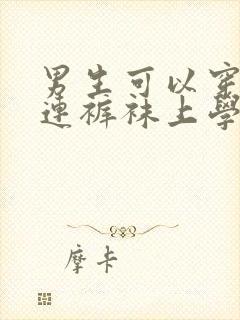 男生可以穿
連褲袜上學
摩卡